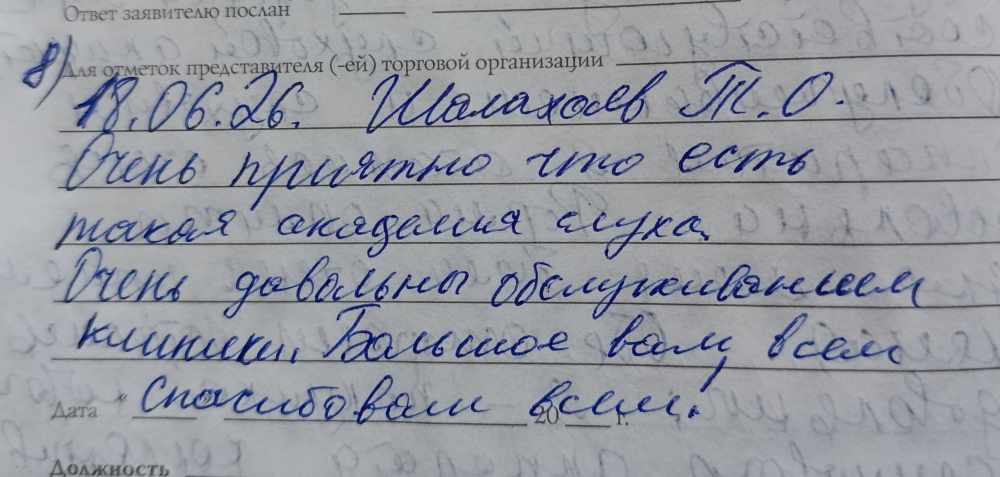 Ответ заявителю послан
8) Для отметок представителя (-ей) торговой организации
18.06.26. Шалахаев Т.О.
Очень приятно что есть
такая академия слуха.
Очень довольны обслуживанием
клиники. Большое вам всем
Дата " Спасибо вам всем! 20 г.
Должность